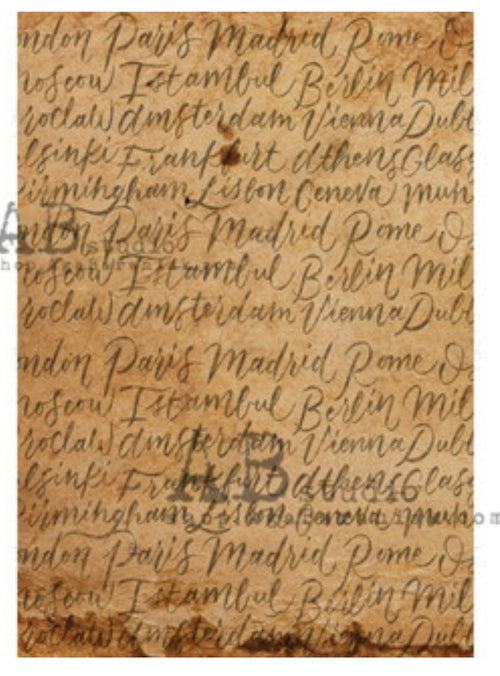 ndon Paris Madrid Rome O
noscow Istanbul Berlin Mil
roclaw Amsterdam Vienna Dubl
lsinki Frankfurt Athens Glasg
irmingham Lisbon Geneva Mun
ndon Paris Madrid Rome Os
noscow Istambul Berlin Mil
roclaw Amsterdam Vienna Dubl
ndon Paris Madrid Rome Os
noscow Istambul Berlin Mil
roclaw Amsterdam Vienna Dubl
lsinki Frankfurt Athens Glasg
irmingham Lisbon Geneva Mun
ndon Paris Madrid Rome Os
noscow Istambul Berlin Mil
roclaw Amsterdam Vienna Dubl
AB studio
AB studio